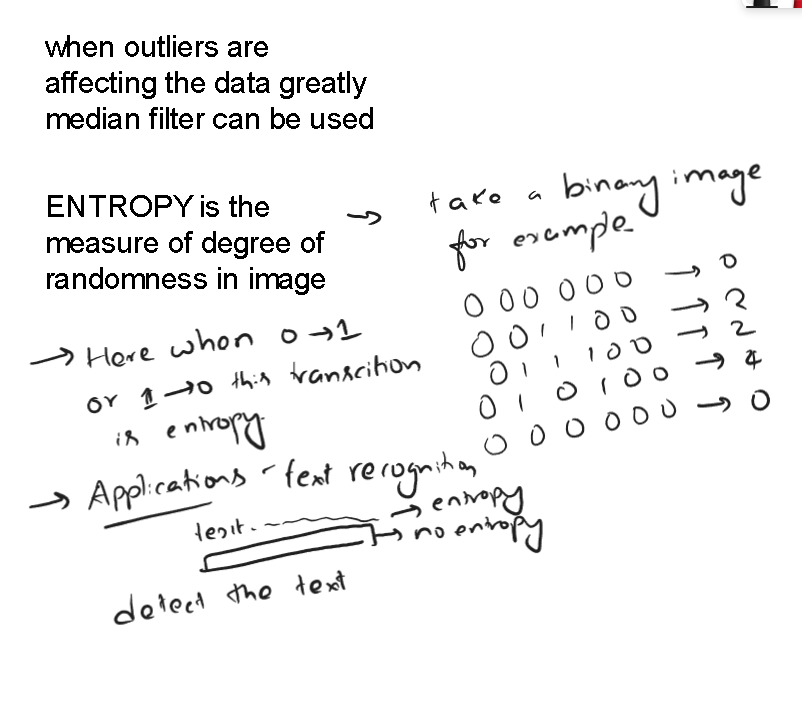 when outliers are
affecting the data greatly
median filter can be used
ENTROPY is the
measure of degree of
randomness in image
→ take a binary image
for example
0 0 0 0 0 0 → 0
0 0 1 1 0 0 → 2
0 1 1 1 0 0 → 2
0 1 0 1 0 0 → 4
0 0 0 0 0 0 → 0
→ Here when 0 → 1
or 1 → 0 this transcition
is entropy.
→ Applications - text recognition
→ entropy
→ no entropy
detect the text